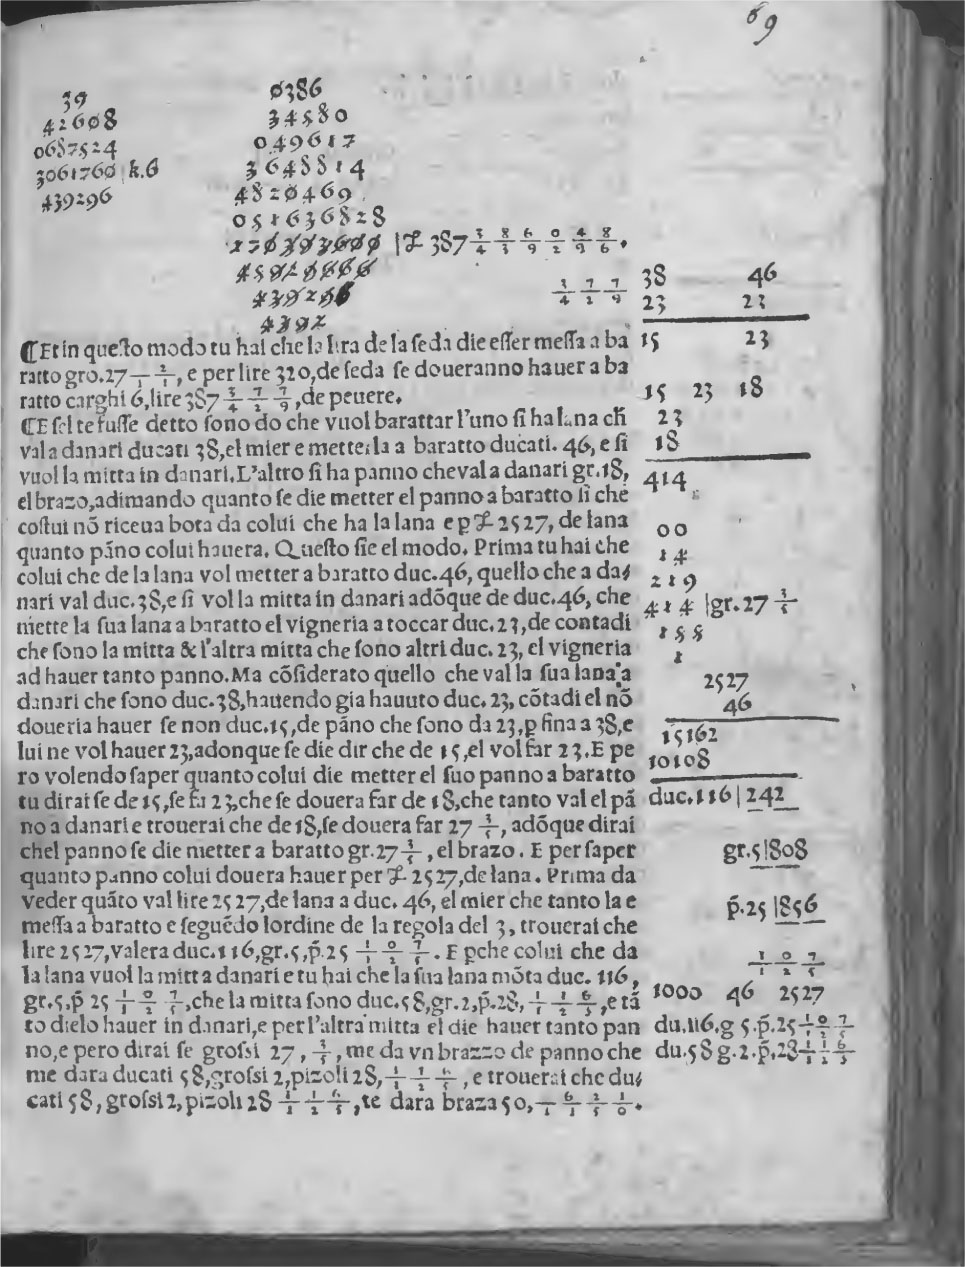 69
39
42608
0687524
3061760 | k.6
439296
0386
34580
049617
3648814
4820469
051636828
387 3/4 8/3 6/9 0/2 4/9 8/6.
4392
3/4 7/2 7/9
¶Et in questo modo tu hai che la lira de la seda die esser messa a ba
ratto gro.27 — 2/1, e per lire 320, de seda se doueranno hauer a ba
ratto carghi 6, lire 387 3/4 7/2 7/9, de peuere.
¶E sel te fusse detto sono do che vuol barattar l'uno si ha lana ch
val a danari ducati 38, el mier e mettela a baratto ducati. 46, e si
vuol la mitta in danari. L'altro si ha panno che val a danari gr. 18,
el brazo, adimando quanto se die metter el panno a baratto si che
costui nō riceua bota da colui che ha la lana e p ₤ 2527, de lana
quanto pāno colui hauera. Questo sie el modo. Prima tu hai che
colui che de la lana vol metter a baratto duc. 46, quello che a da⸗
nari val duc. 38, e si vol la mitta in danari adōque de duc. 46, che
mette la sua lana a baratto el vigneria a toccar duc. 23, de contadi
che sono la mitta & l'altra mitta che sono altri duc. 23, el vigneria
ad hauer tanto panno. Ma cōsiderato quello che val la sua lana a
danari che sono duc. 38, hauendo gia hauuto duc. 23, cōtadi el nō
doueria hauer se non duc. 15, de pāno che sono da 23, p fina a 38, e
lui ne vol hauer 23, adonque se die dir che de 15, el vol far 23. E pe
ro volendo saper quanto colui die metter el suo panno a baratto
tu dirai se de 15, se fa 23, che se douera far de 18, che tanto val el pā
no a danari e trouerai che de 18, se douera far 27 3/5, adōque dirai
chel panno se die metter a baratto gr. 27 3/5, el brazo. E per saper
quanto panno colui douera hauer per ₤ 2527, de lana. Prima da
veder quāto val lire 2527, de lana a duc. 46, el mier che tanto la e
messa a baratto e seguēdo lordine de la regola del 3, trouerai che
lire 2527, valera duc. 116, gr. 5, p̄. 25 1/1 0/2 7/5. E pche colui che da
la lana vuol la mitta danari e tu hai che la sua lana mōta duc. 116,
gr. 5, p̄ 25 1/1 0/2 7/5, che la mitta sono duc. 58, gr. 2, p̄. 28, 1/1 1/2 6/5, e tā
to dielo hauer in danari, e per l'altra mitta el die hauer tanto pan
no, e pero dirai se grossi 27, 3/5, me da vn brazzo de panno che
me dara ducati 58, grossi 2, pizoli 28, 1/1 1/2 6/5, e trouerai che du⸗
cati 58, grossi 2, pizoli 28 1/1 1/2 6/5, te dara braza 50, —/1 6/3 2/5 1/0.
38 46
23 23
15 23
15 23 18
23
18
414
00
14
219
414 | gr. 27 3/5
155
1
2527
46
15162
10108
duc. 116 | 242
gr. 5 | 808
p̄. 25 | 856
1/1 0/2 7/5
1000 46 2527
du. 116. g 5. p̄. 25 1/1 0/2 7/5
du. 58 g. 2. p̄. 28 1/1 1/2 6/5